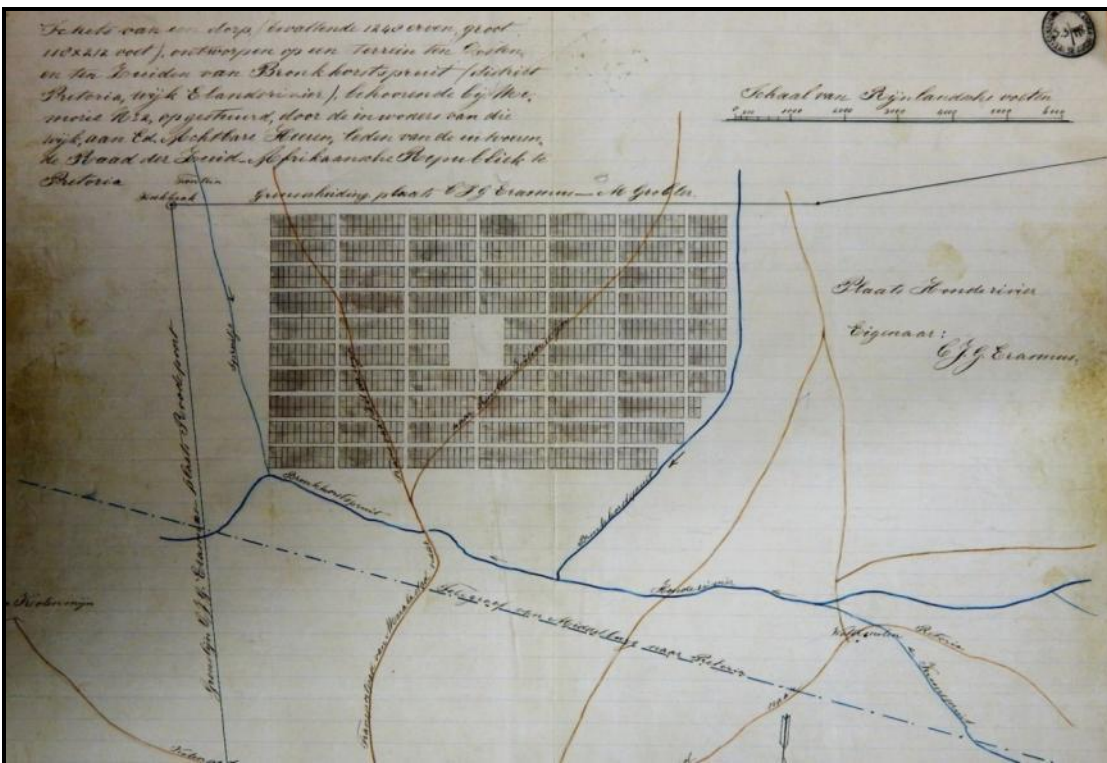 Schets van een dorp (bevattende 1240 erven, groot
118x212 voet), ontworpen op een Terrein ten Oosten
en ten Zuiden van Bronkhorstspruit (distrikt
Pretoria, wijk Elandsrivier), behoorende bij Me-
morie opgestuurd, door de inwoners van die
wijk, aan Ed. Achtbare Heeren, leden van de
Raad der Zuid-Afrikaansche Republiek te
Pretoria
Schaal van Rijnlandsche voeten
Fontein
Grensscheiding plaats C.J.G. Erasmus — M Grobler.
Spruitje
Plaats Honderivier
Eigenaar:
C.J.G. Erasmus.
Grenslijn C.J.G. Erasmus plaats Roodepoort
Bronkhorstspruit
Bronkhorstspruit
Honderivier
Telegraaf van Middelburg naar Pretoria
Kolenmijn
Pretoria
naar